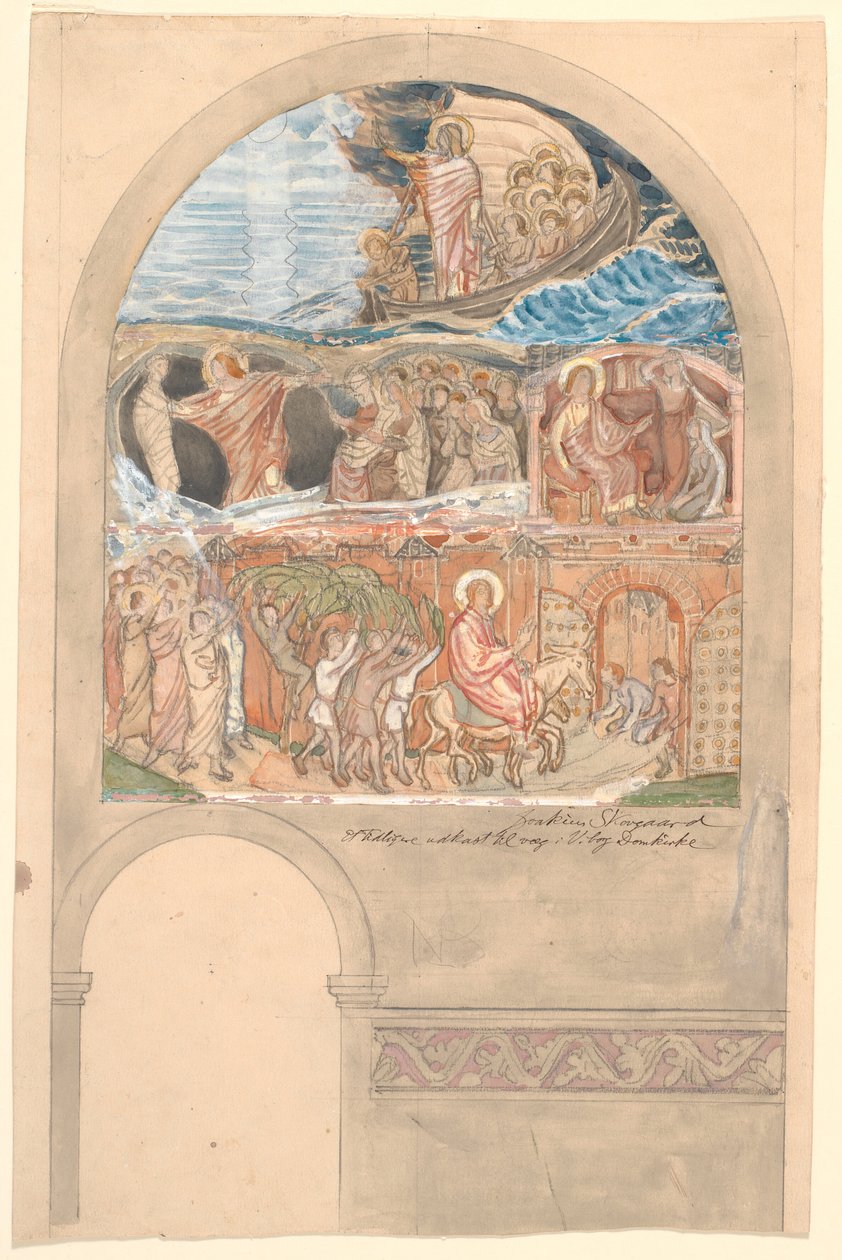 Joakim Skovgaard
tidligere udkast til væg i Viborg Domkirke